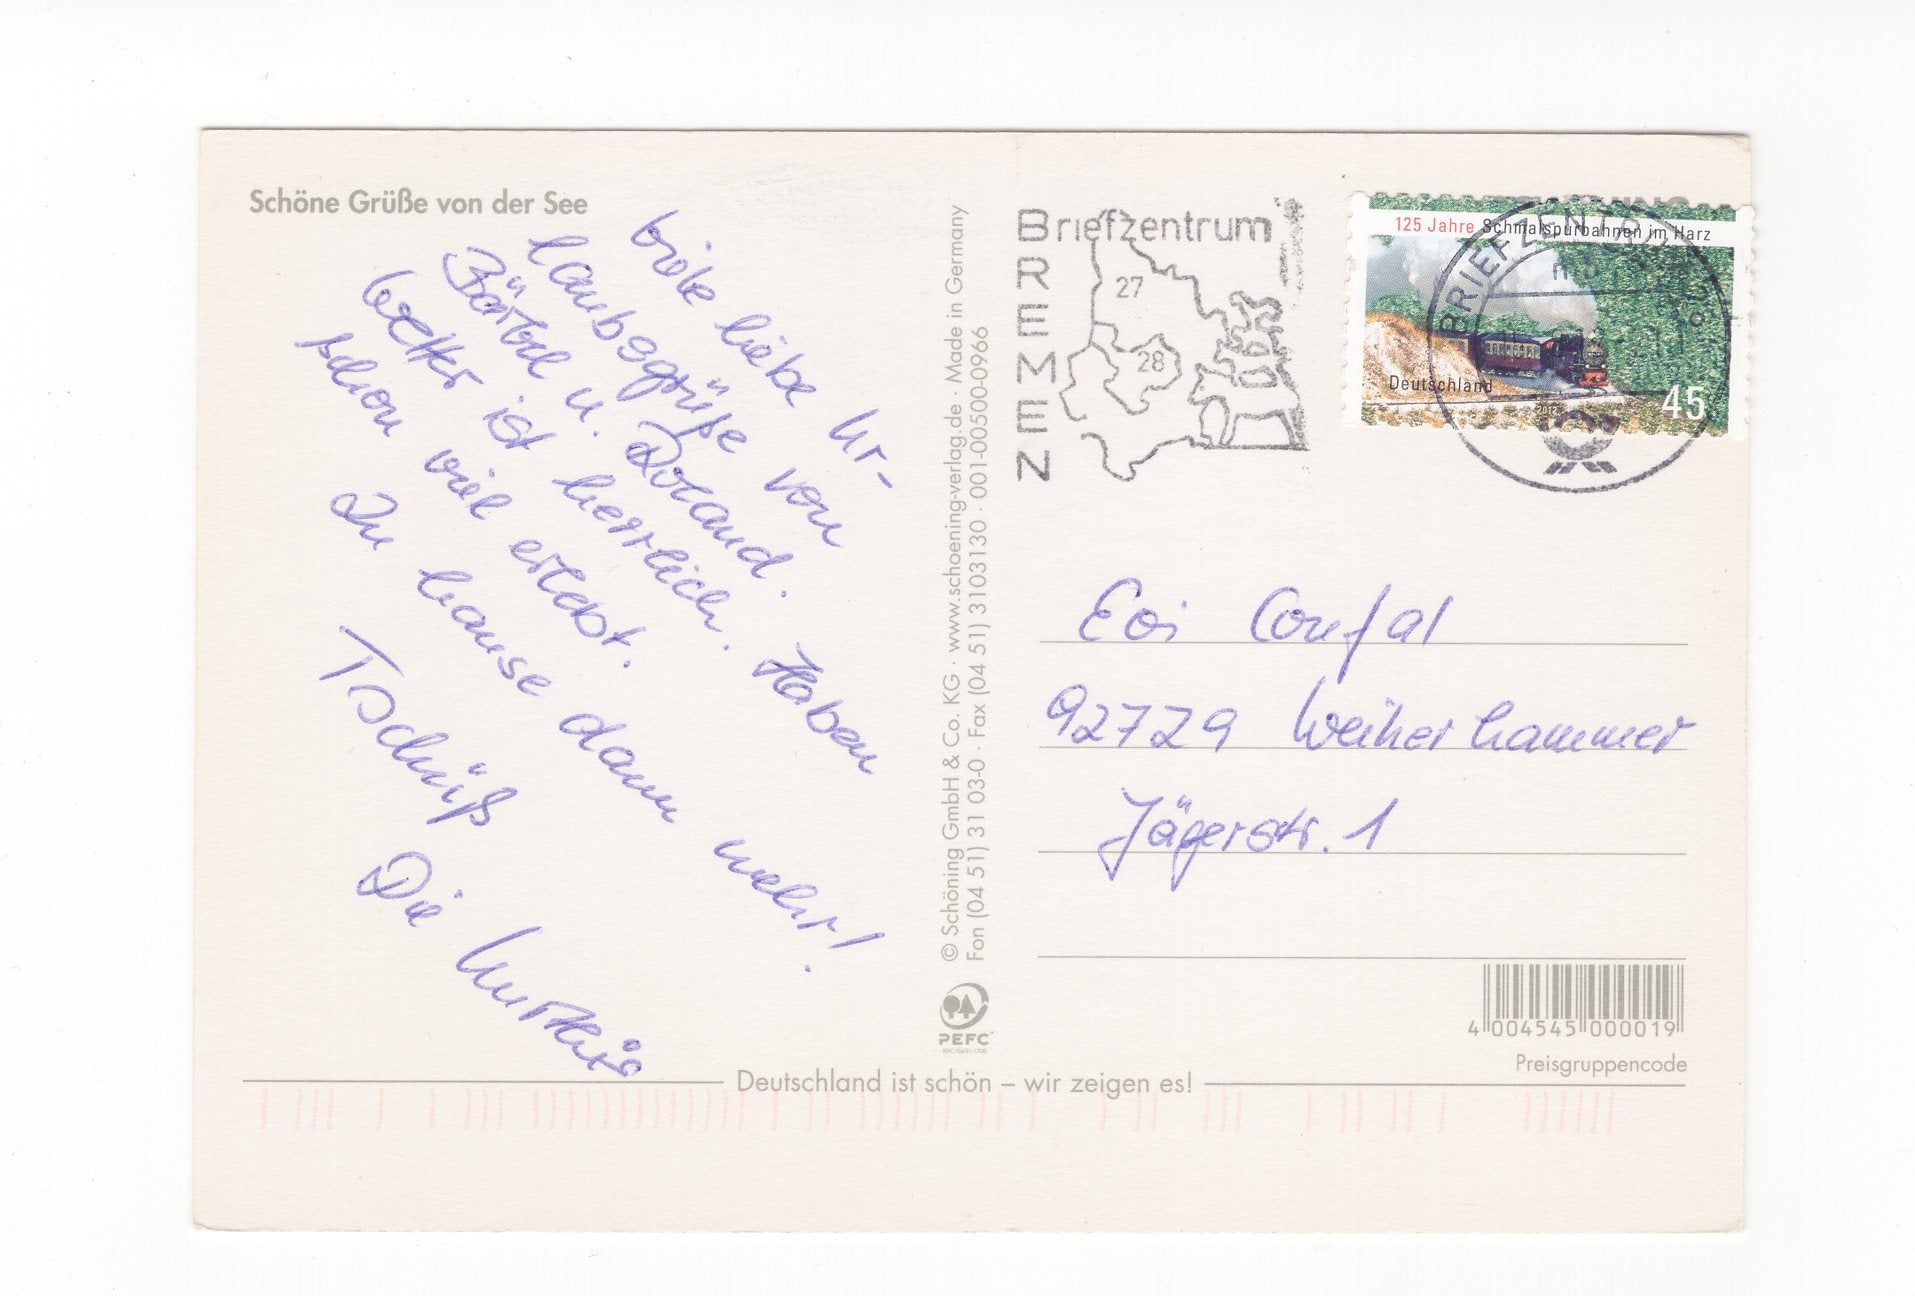 Schöne Grüße von der See
viele liebe Ur-
laubsgrüße von
Bärbel u. Roland.
Wetter ist herrlich. Haben
schon viel erlebt.
Zu hause dann mehr!
Tschüß
Die
© Schöning GmbH & Co. KG · www.schoening-verlag.de · Made in Germany
Fon (04 51) 31 03-0 · Fax (04 51) 3103130 · 001-00500-0966
PEFC
Briefzentrum
BREMEN
27
28
125 Jahre Schmalspurbahnen im Harz
Deutschland
45
BRIEFZENTRUM
92729 Weiherhammer
Jägerstr. 1
4 004545 000019
Preisgruppencode
Deutschland ist schön – wir zeigen es!